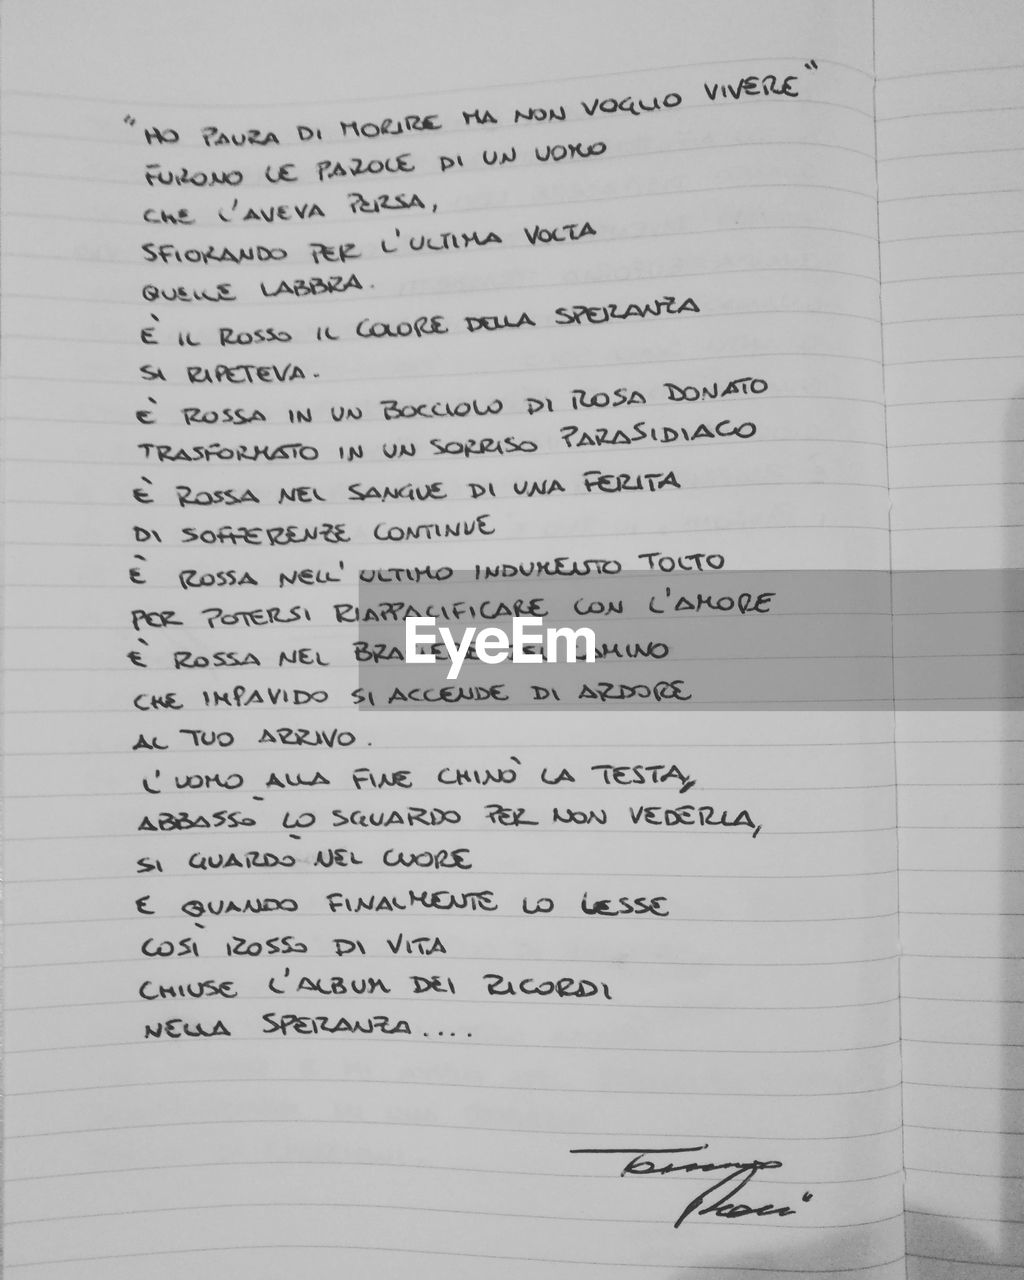 "HO PAURA DI MORIRE MA NON VOGLIO VIVERE"
FURONO LE PAROLE DI UN UOMO
CHE L'AVEVA PERSA,
SFIORANDO PER L'ULTIMA VOLTA
QUELLE LABBRA.
È IL ROSSO IL COLORE DELLA SPERANZA
SI RIPETEVA.
È ROSSA IN UN BOCCIOLO DI ROSA DONATO
TRASFORMATO IN UN SORRISO PARASIDIACO
È ROSSA NEL SANGUE DI UNA FERITA
DI SOFFERENZE CONTINUE
È ROSSA NELL'ULTIMO INDUMENTO TOLTO
PER POTERSI RIAPPACIFICARE CON L'AMORE
È ROSSA NEL CAMINO
EyeEm
CHE IMPAVIDO SI ACCENDE DI ARDORE
AL TUO ARRIVO.
L'UOMO ALLA FINE CHINÒ LA TESTA,
ABBASSÒ LO SGUARDO PER NON VEDERLA,
SI GUARDÒ NEL CUORE
E QUANDO FINALMENTE LO LESSE
COSÌ ROSSO DI VITA
CHIUSE L'ALBUM DEI RICORDI
NELLA SPERANZA....